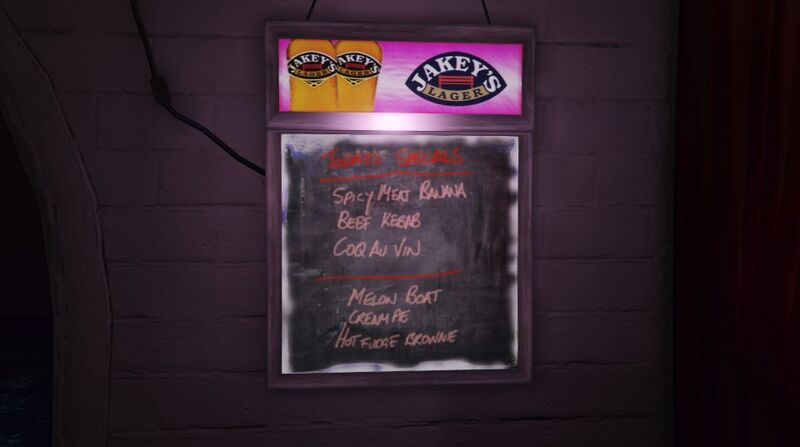 JAKEY'S JAKEY'S JAKEY'S
LAGER LAGER LAGER
TODAY'S SPECIALS
SPICY MEAT BANANA
BEEF KEBAB
COQ AU VIN
MELON BOAT
CREAM PIE
HOT FUDGE BROWNIE